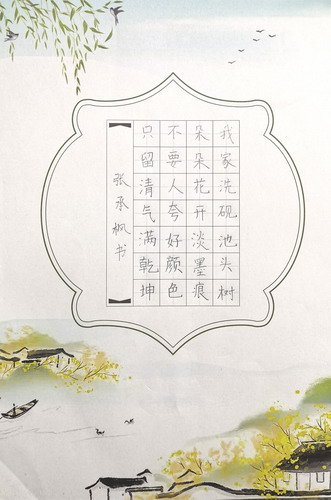 我家洗砚池头树
朵朵花开淡墨痕
不要人夸好颜色
只留清气满乾坤
张承枫书